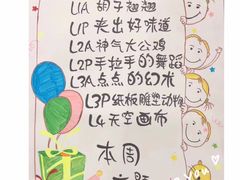 L1A 胡子翘翘
L1P 夹出好味道
L2A 神气大公鸡
L2P 手拉手的舞蹈
L3A 点点的幻术
L3P 纸板雕塑动物
L4 天空画布
本周